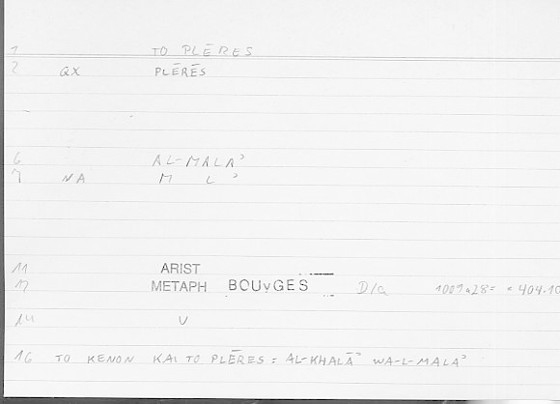 1 TO PLĒRES
2 QX PLĒRĒS
6 AL-MALAʾ
7 NA M L ʾ
11 ARIST
12 METAPH BOUyGES D/a 1009a28= = 404.10
14 V
16 TO KENON KAI TO PLĒRES = AL-KHALĀʾ WA-L-MALAʾ